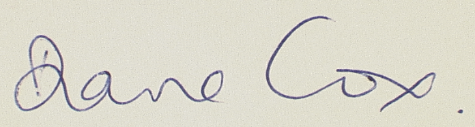 Diane Cox.